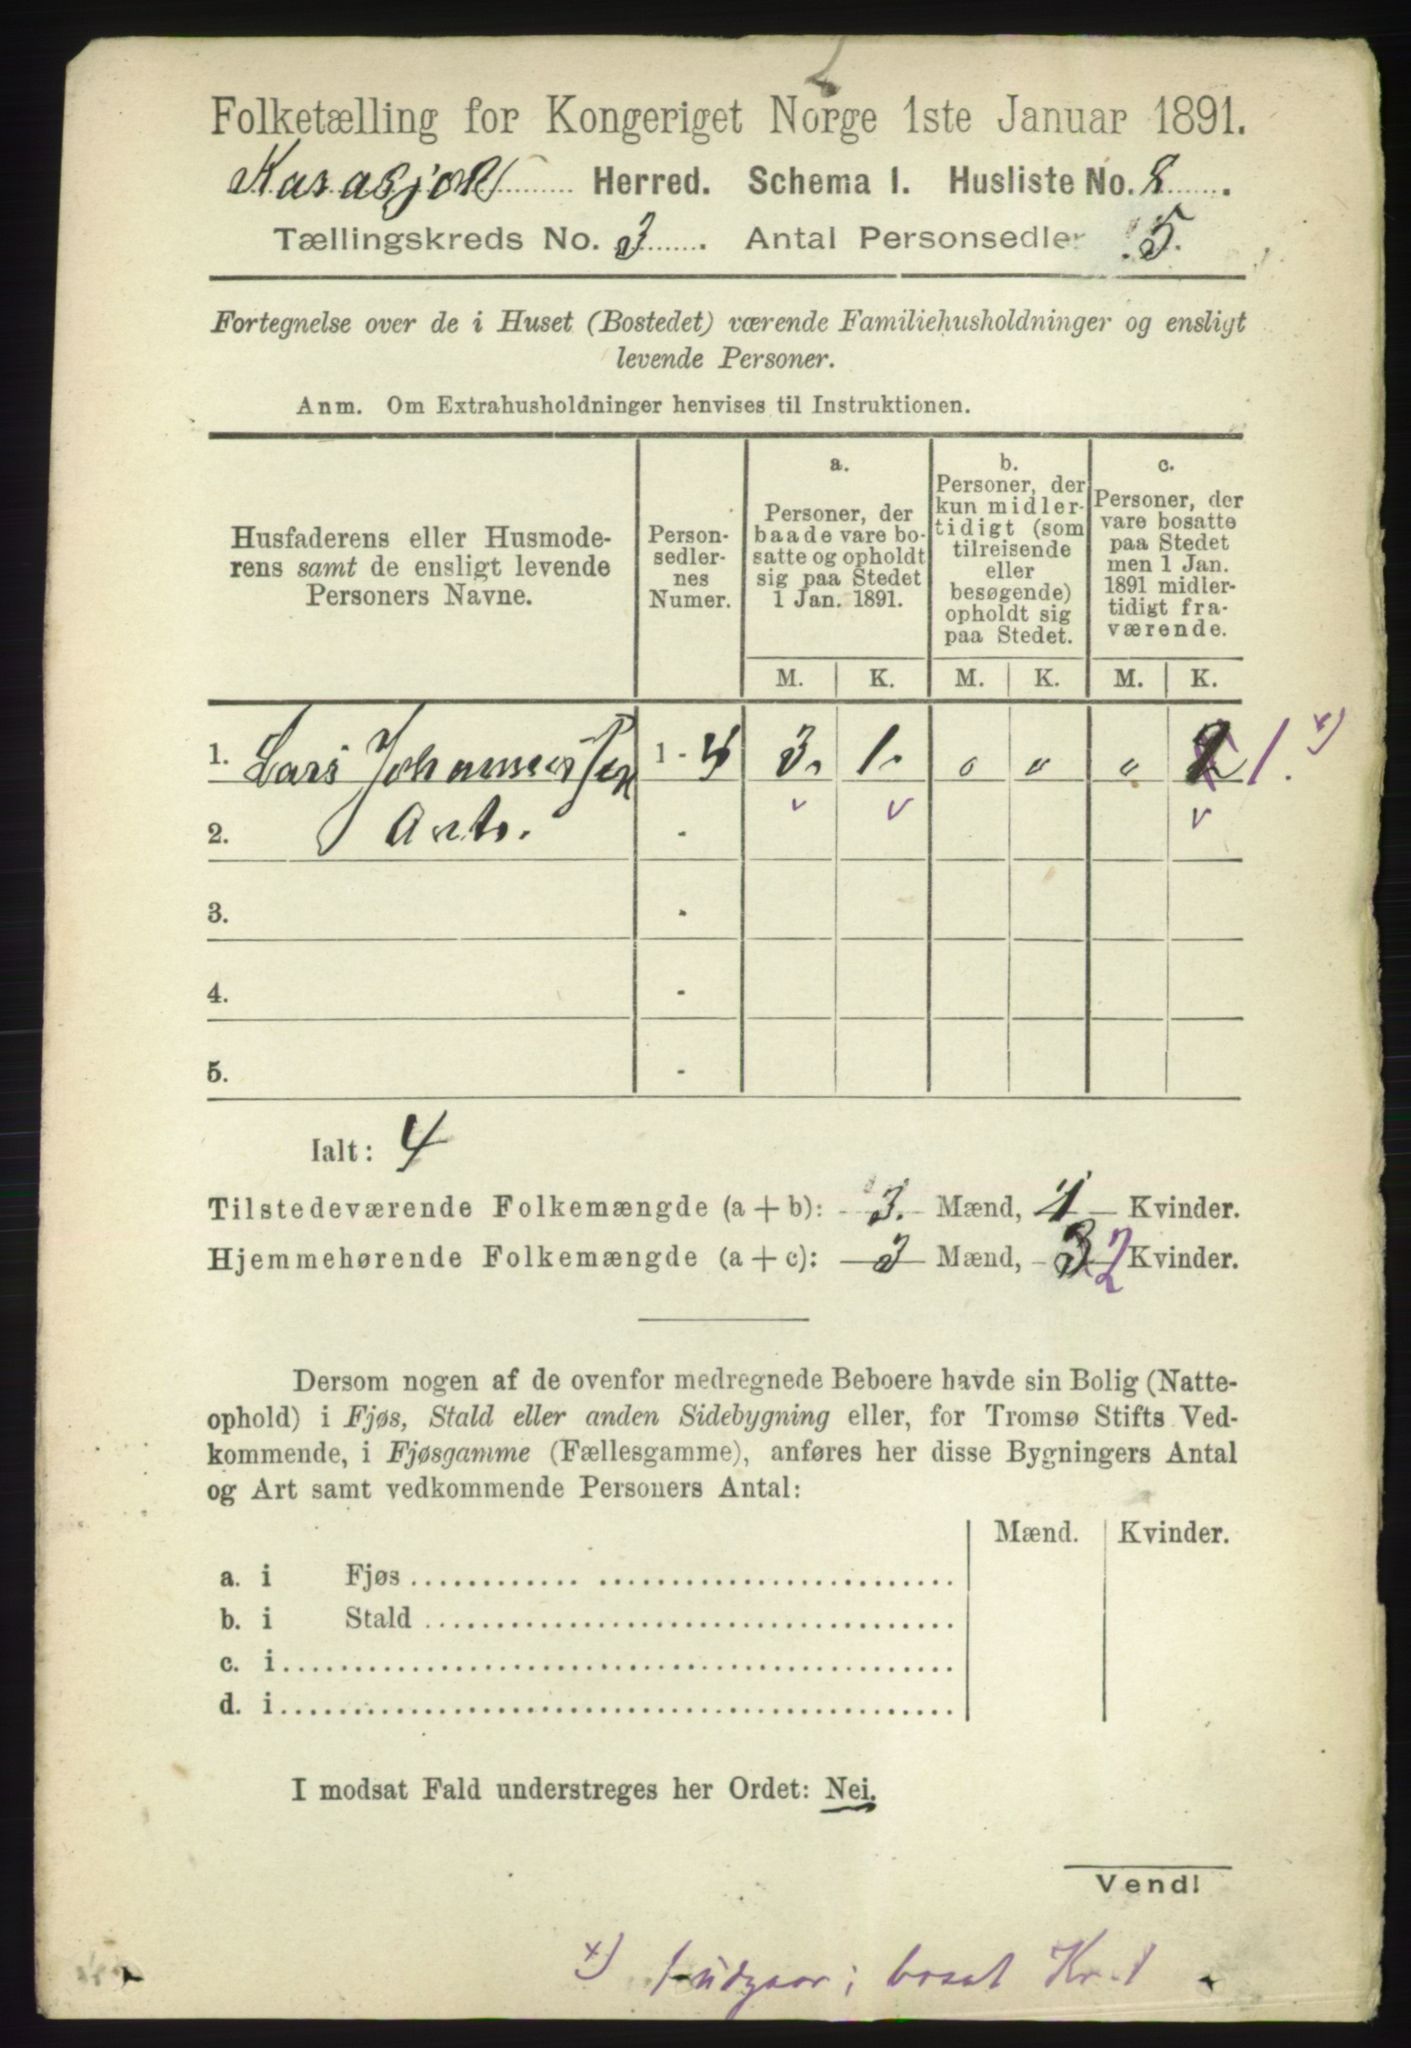 Folketælling for Kongeriget Norge 1ste Januar 1891.
Karasjok Herred. Schema 1. Husliste No. 8
Tællingskreds No. 3. Antal Personsedler 5.
Fortegnelse over de i Huset (Bostedet) værende Familiehusholdninger og ensligt
levende Personer.
Anm. Om Extrahusholdninger henvises til Instruktionen.
Husfaderens eller Husmode-
rens samt de ensligt levende
Personers Navne.
Person-
sedler-
nes
Numer.
a.
Personer, der
baade vare bo-
satte og opholdt
sig paa Stedet
1 Jan. 1891.
b.
Personer, der
kun midler-
tidigt (som
tilreisende
eller
besøgende)
opholdt sig
paa Stedet.
c.
Personer, der
vare bosatte
paa Stedet
men 1 Jan.
1891 midler-
tidigt fra-
værende.
M. K. M. K. M. K.
1. Lars Johannessen 1 - 3. 1. 〃 〃 〃 2 1. x)
2. Anto. -
3. -
4. -
5. -
Ialt: 4
Tilstedeværende Folkemængde (a + b): 3. Mænd, 1 Kvinder.
Hjemmehørende Folkemængde (a + c): 3 Mænd, 3 2 Kvinder.
Dersom nogen af de ovenfor medregnede Beboere havde sin Bolig (Natte-
ophold) i Fjøs, Stald eller anden Sidebygning eller, for Tromsø Stifts Ved-
kommende, i Fjøsgamme (Fællesgamme), anføres her disse Bygningers Antal
og Art samt vedkommende Personers Antal:
Mænd. Kvinder.
a. i Fjøs
b. i Stald
c. i
d. i
I modsat Fald understreges her Ordet: Nei.
Vend!
x) 1 udgaar; bosat Kr. 1